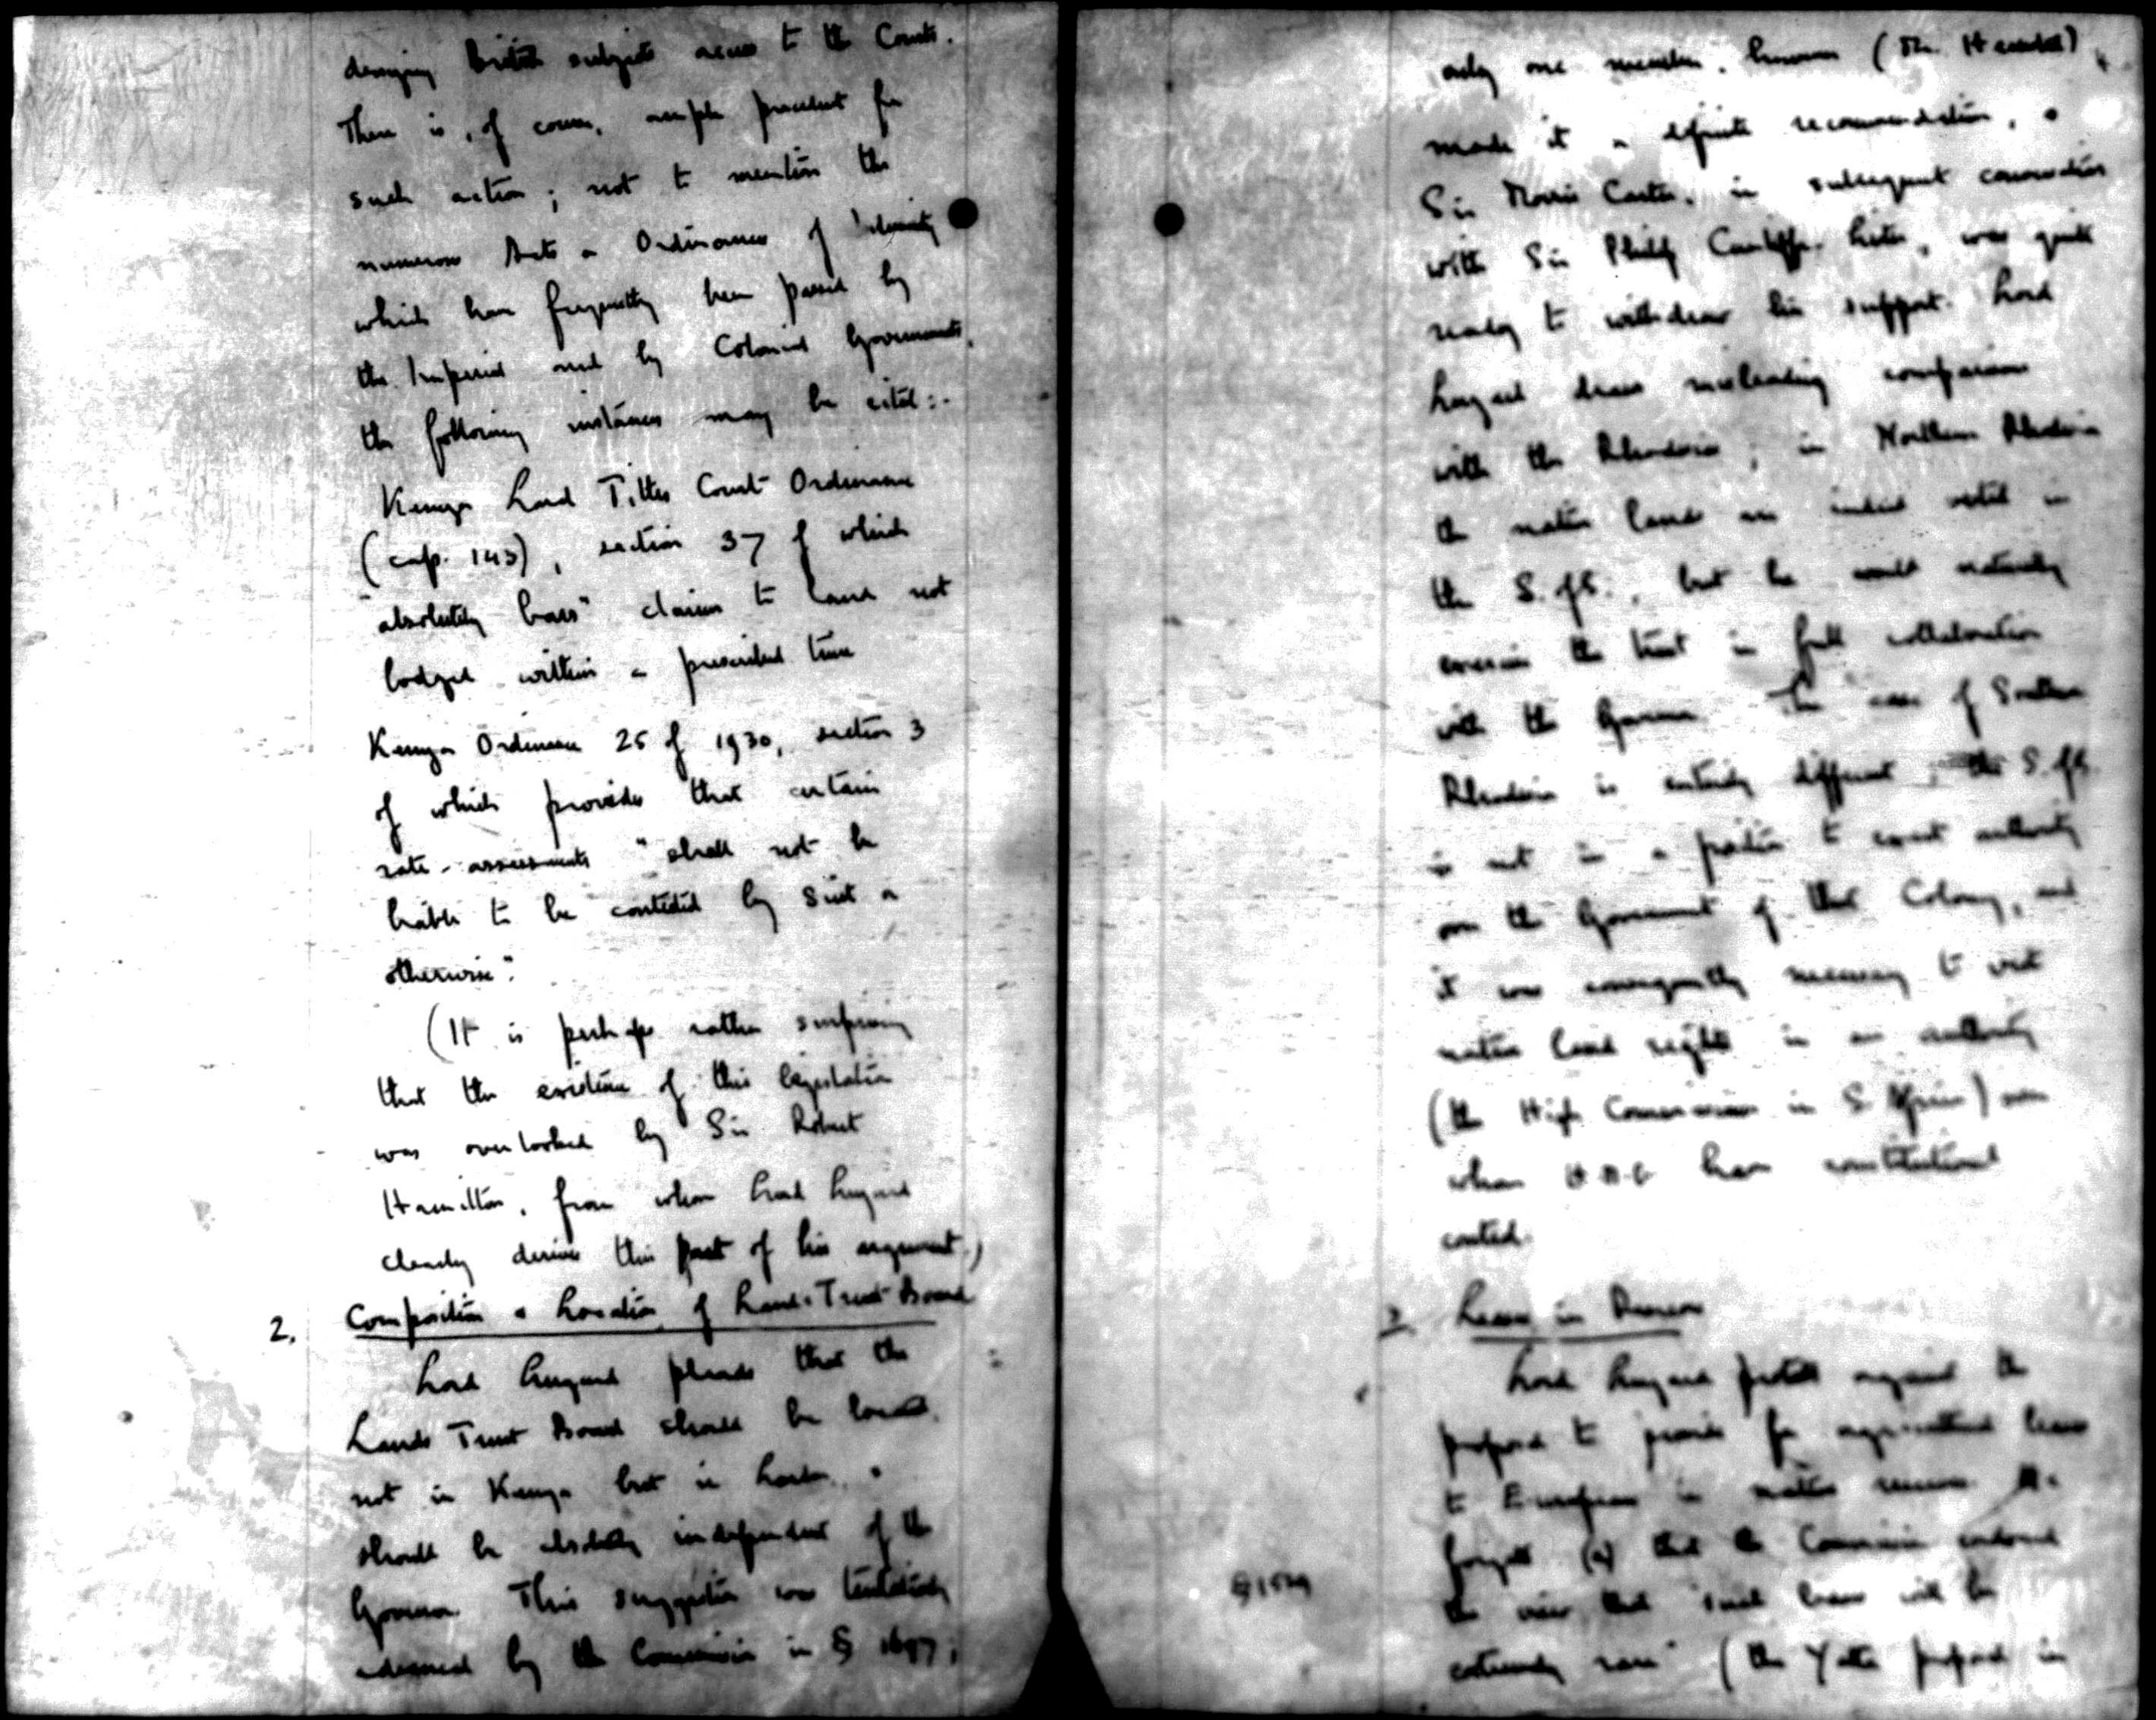 denying British subjects access to the Courts.
There is, of course, ample precedent for
such action; not to mention the
numerous Acts or Ordinances of Indemnity
which have frequently been passed by
the Imperial and by Colonial Governments,
the following instances may be cited:-
Kenya Land Titles Court Ordinance
(cap. 143), section 37 of which
"absolutely bars" claims to land not
lodged within a prescribed time
Kenya Ordinance 25 of 1930, section 3
of which provides that certain
rate-assessments "shall not be
liable to be contested by suit or
otherwise".
(It is perhaps rather surprising
that the existence of this legislation
was overlooked by Sir Robert
Hamilton, from whom Lord Lugard
clearly derives this part of his argument.)
2. Composition & Location of Lands Trust Board
Lord Lugard pleads that the
Lands Trust Board should be located
not in Kenya but in London, &
should be absolutely independent of the
Governor. This suggestion was tentatively
advanced by the Commission in § 1697;
only one member, however (Mr. Hemsted)
made it a definite recommendation, &
Sir Morris Carter, in subsequent conversation
with Sir Philip Cunliffe-Lister, was quite
ready to withdraw his support. Lord
Lugard draws misleading comparisons
with the Rhodesias; in Northern Rhodesia
the native lands are indeed vested in
the S. of S., but he would naturally
exercise the trust in full collaboration
with the Governor. The case of Southern
Rhodesia is entirely different; the S. of S.
is not in a position to exert authority
over the Government of that Colony, and
it was consequently necessary to vest
native land rights in an authority
(the High Commissioner in S. Africa) over
whom H.M.G. have constitutional
control.
3. Leases in Reserves
Lord Lugard protests against the
proposal to provide for agricultural leases
to Europeans in native reserves. He
forgets (a) that the Commission endorsed
the view that "such leases will be
extremely rare" (the Yatta proposal in